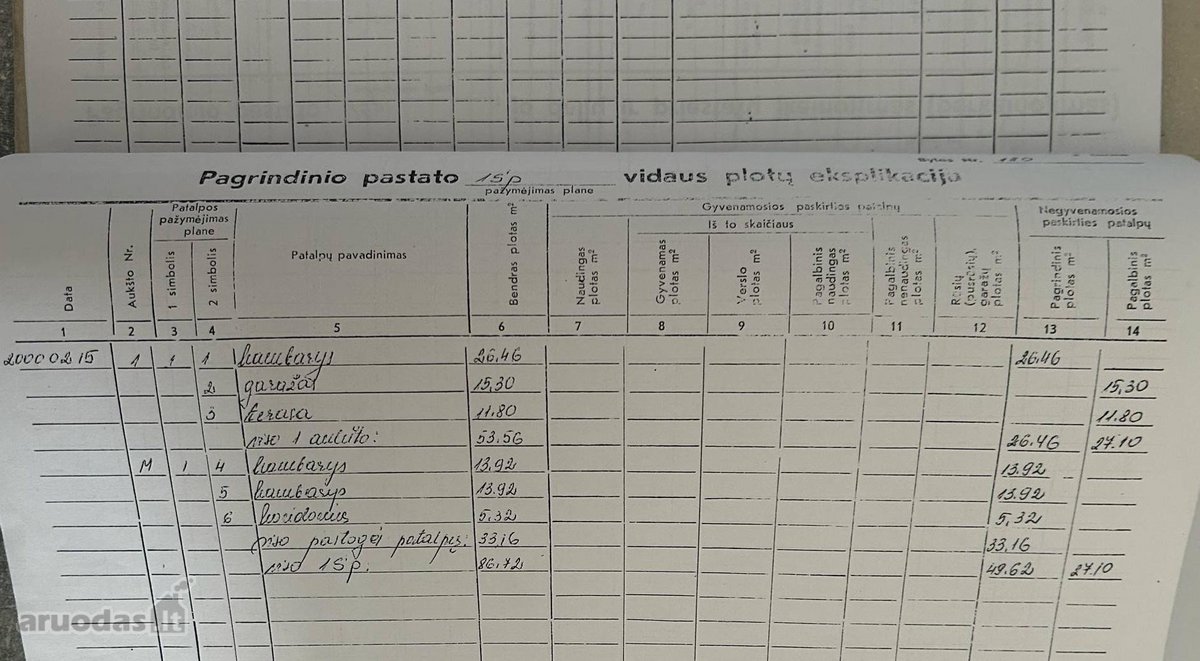 Bylos Nr. 180
Pagrindinio pastato 1Sp vidaus plotų eksplikacija
pažymėjimas plane
Data
Aukšto Nr.
Patalpos pažymėjimas plane
1 simbolis
2 simbolis
Patalpų pavadinimas
Bendras plotas m²
Gyvenamosios paskirties patalpų
Naudingas plotas m²
Iš to skaičiaus
Gyvenamas plotas m²
Verslo plotas m²
Pagalbinis naudingas plotas m²
Pagalbinis nenaudingas plotas m²
Rūsių (pusrūsių), garažų plotas m²
Negyvenamosios paskirties patalpų
Pagrindinis plotas m²
Pagalbinis plotas m²
1 2 3 4 5 6 7 8 9 10 11 12 13 14
20000215 1 1 1 kambarys 26.46 26.46
2 garažas 15,30 15,30
3 terasa 11.80 11.80
viso 1 aukšto: 53.56 26.46 27.10
M 1 4 kambarys 13.92 13.92
5 kambarys 13.92 13.92
6 koridorius 5,32 5,32
viso pastogėj patalpų: 33,16 33.16
viso 1Sp: 86.72 49.62 27.10
aruodas.lt